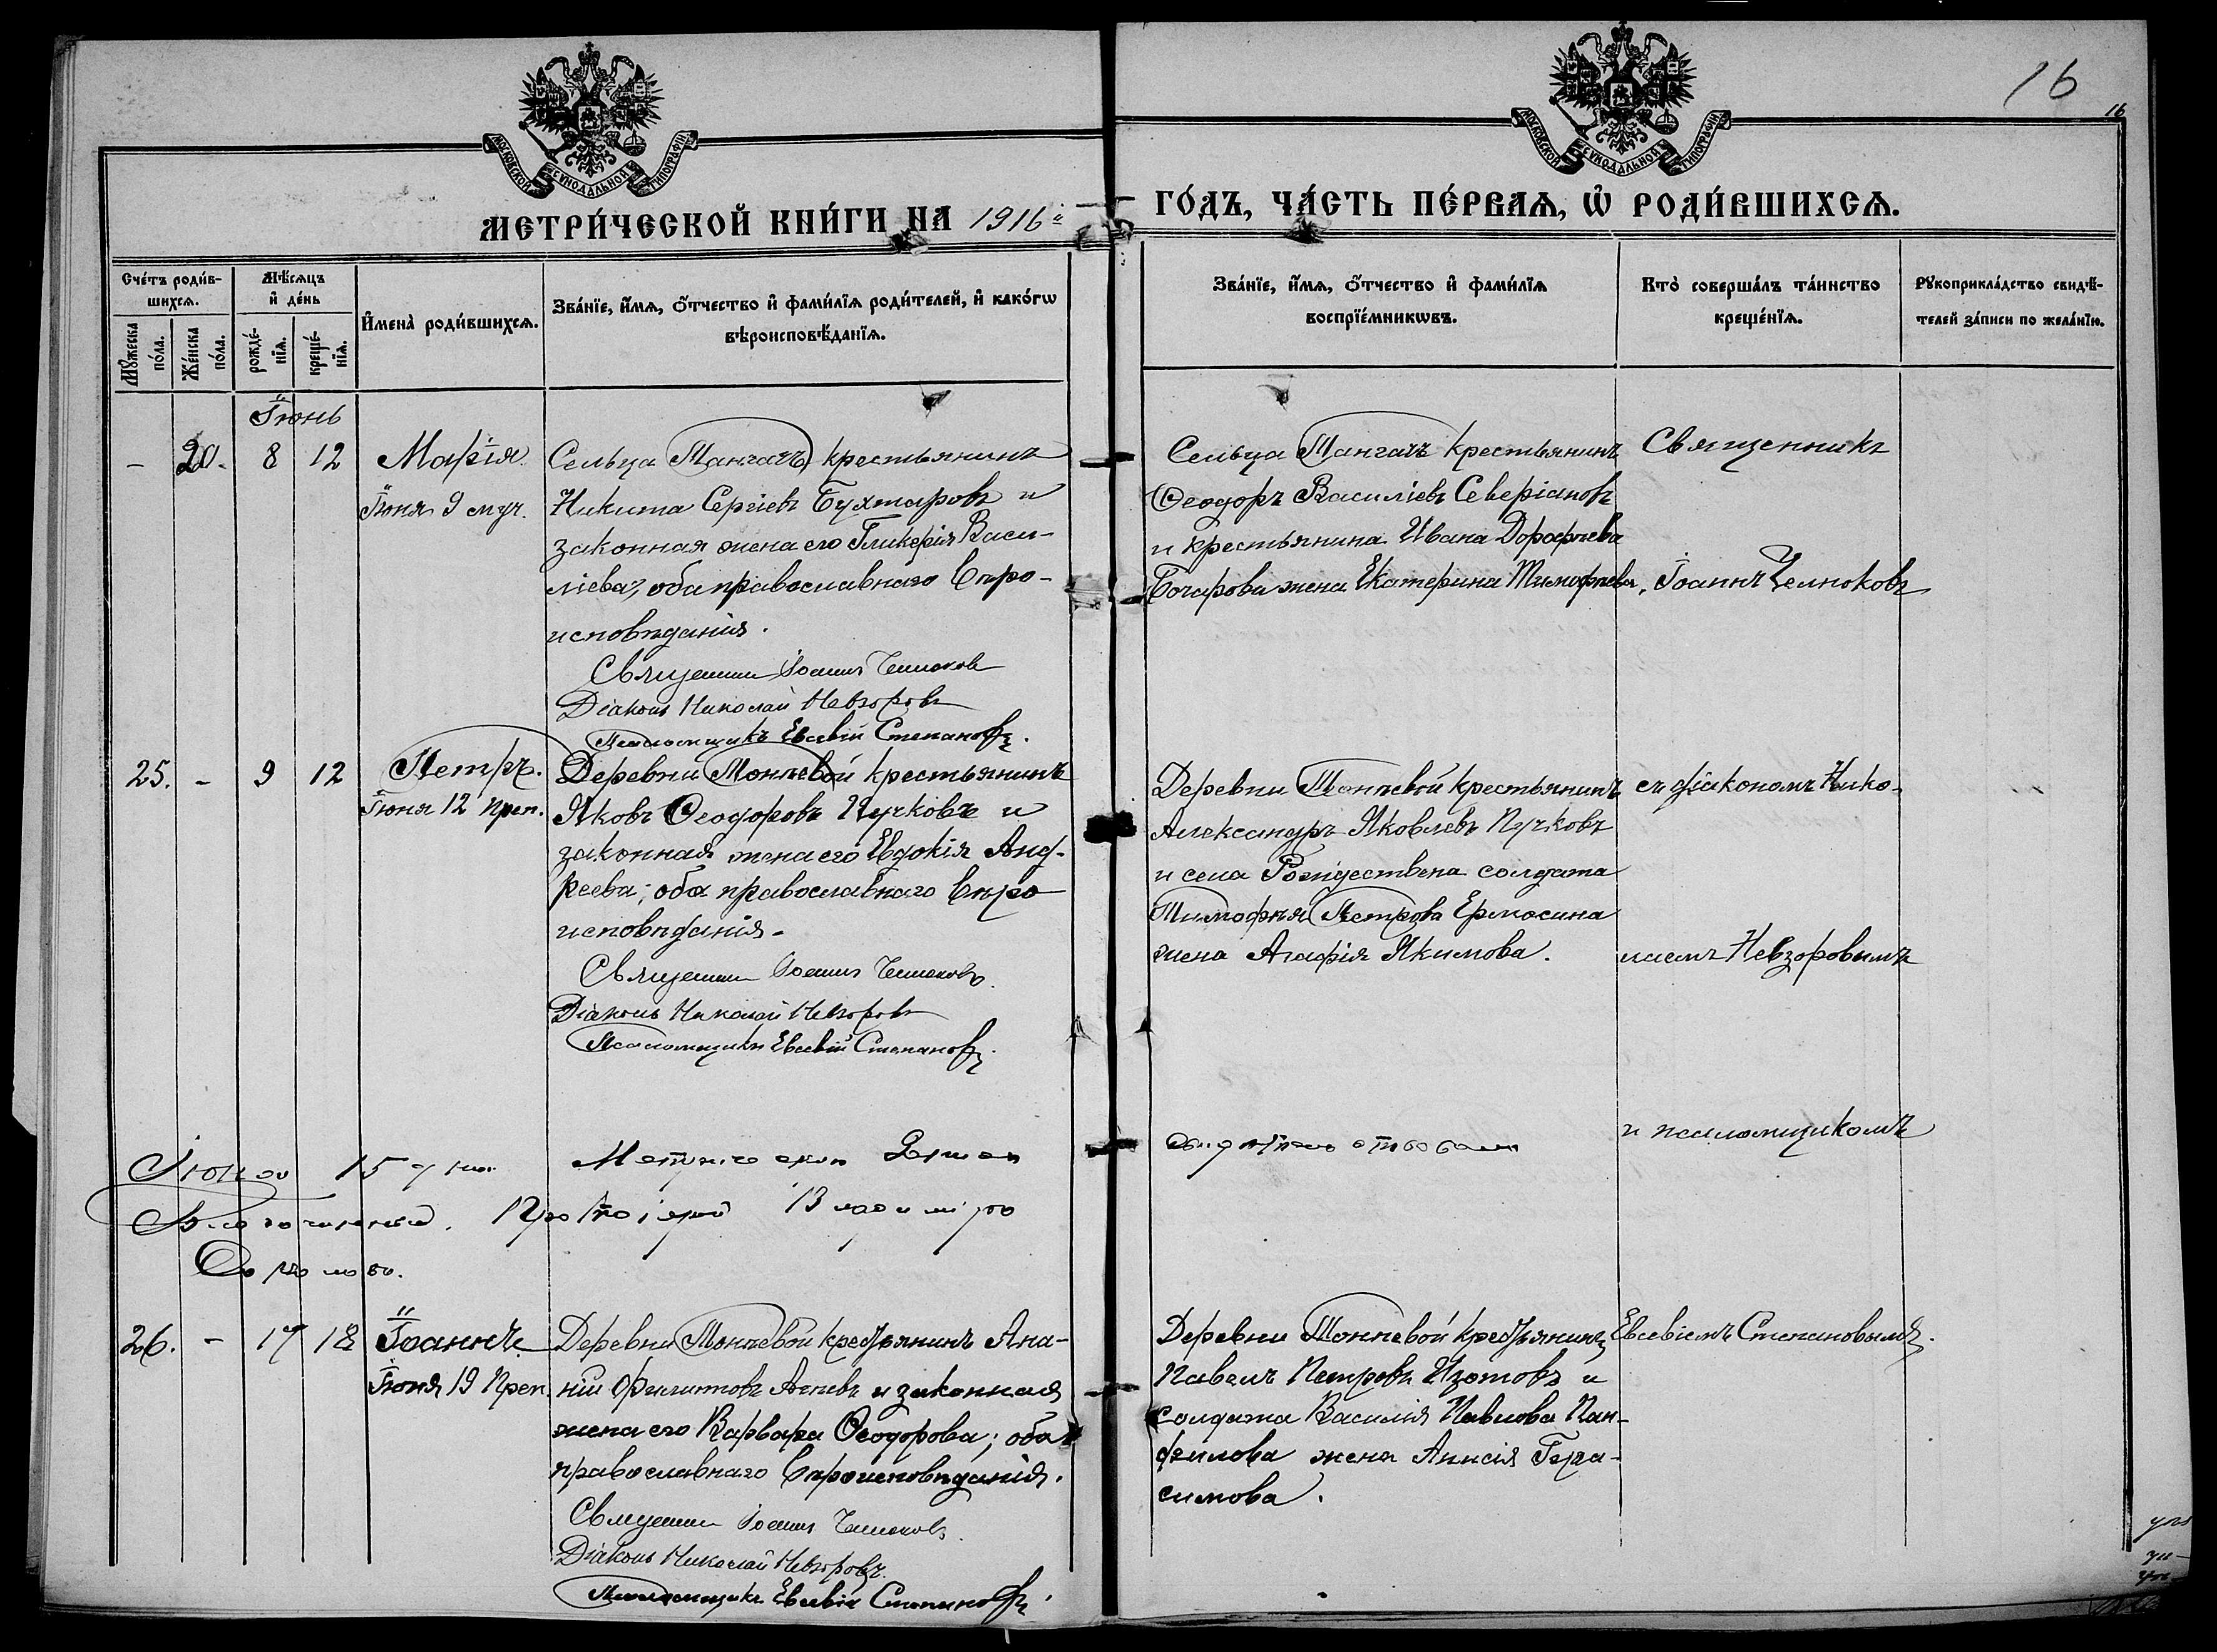 16
16
МОСКОВСКОЙ СѴНОДАЛЬНОЙ ТИПОГРАФІИ
МОСКОВСКОЙ СѴНОДАЛЬНОЙ ТИПОГРАФІИ
МЕТРИ́ЧЕСКОЙ КНИ́ГИ НА 1916й
ГО́ДЪ, ЧА́СТЬ ПЕ́РВАѦ, Ѡ РОДИ́ВШИХСѦ.
Сче́тъ роди́в-
шихсѧ.
Мꙋжеска по́ла.
Же́нска по́ла.
Мѣ́сѧцъ
и҆ де́нь
рожде́-
нїѧ.
креще́-
нїѧ.
И҆мена̀ роди́вшихсѧ.
Зва́нїе, и҆́мѧ, ѻ҆́тчество и҆ фами́лїѧ роди́телей, и҆ како́гѡ
вѣроисповѣ́данїѧ.
Зва́нїе, и҆́мѧ, ѻ҆́тчество и҆ фами́лїѧ
воспрїе́мникѡвъ.
Кто̀ соверша́лъ та́инство
креще́нїѧ.
Рꙋкоприкла́дство свидѣ́-
телей за́писи по жела́нїю.
Іюнь
– 20. 8 12 Марія.
Іюня 9 муч.
Сельца Мангачъ крестьянинъ
Никита Сергіевъ Бухтаровъ и
законная жена его Гликерія Васи-
ліева, оба православнаго вѣро-
исповѣданія.
Священникъ Іоаннъ
Діаконъ Николай Невзоровъ
Псаломщикъ Евсевій Степановъ.
Сельца Мангачъ крестьянинъ
Ѳеодоръ Василіевъ Северіановъ
и крестьянина Ивана Дорофѣева
Бочарова жена Екатерина Тимофѣева.
Священникъ
Іоаннъ
25. – 9 12 Петръ.
Іюня 12 преп.
Деревни крестьянинъ
Яковъ Ѳеодоровъ Пучковъ и
законная жена его Евдокія Анд-
реева; оба православнаго вѣро
исповѣданія.
Священникъ Іоаннъ
Діаконъ Николай Невзоровъ
Псаломщикъ Евсевій Степановъ.
Деревни крестьянинъ
Александръ Яковлевъ Пучковъ
и села Рождествена солдата
Тимофѣя Петрова Ермосина
жена Агафія Якимова.
съ діакономъ Нико-
лаемъ Невзоровымъ
и псаломщикомъ
Іюня 15 дня
Благочинный. Протоіерей Владиміръ
26. – 17 18 Іоаннъ.
Іюня 19 Преп.
Деревни крестьянинъ Ана-
ній Филиповъ и законная
жена его Варвара Ѳеодорова; оба
православнаго вѣроисповѣданія.
Священникъ Іоаннъ
Діаконъ Николай Невзоровъ.
Псаломщикъ Евсевій Степановъ.
Деревни крестьянинъ
Павелъ Петровъ Изотовъ и
солдата Василія Павлова Пан-
филова жена Анисія Гера-
симова.
Евсевіемъ Степановымъ.